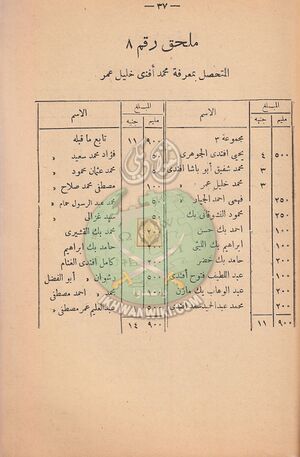 — ٣٧ —
ملحق رقم ٨
المتحصل بمعرفة محمد أفندى خليل عمر
المبلغ الاسم
مليم جنيه
مجموعة ٣
٥٠٠ ٤ يحيى افندى الجوهرى
٣ محمد شفيق أبو باشا افندى
٣ محمد خليل عمر
٢٥٠ فهمى احمد الجبار »
٢٥٠ محمود الشنوفانى بك
١٠٠ احمد بك حسن
١٠٠ ابراهيم بك الليثى
١٠٠ حامد بك خضر
١٠٠ عبد اللطيف فتوح أفندى
٢٥٠ عبد الوهاب بك مازن
٢٥٠ محمد عبد الحميد سعد افندى
٩٠٠ ١١
المبلغ الاسم
مليم جنيه
٩٠٠ ١١ تابع ما قبله
فؤاد محمد سعيد »
محمد عثمان محمود »
١٠٠ مصطفى محمد صلاح »
محمد عبد الرسول حمام »
سعيد غزالى »
محمد بك القشيرى
حامد بك ابراهيم
كامل أفندى الغنام
رشوان » أبو الفضل
محمد » احمد مصطفى
عبد العليم عمر مصطفى »
٩٠٠ ١٤
IKHWANWIKI.COM